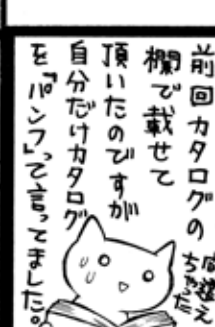 前回カタログの
欄で載せて
頂いたのですが
自分だけカタログ
を「パンフ」って言ってました。
間違え
ちゃった